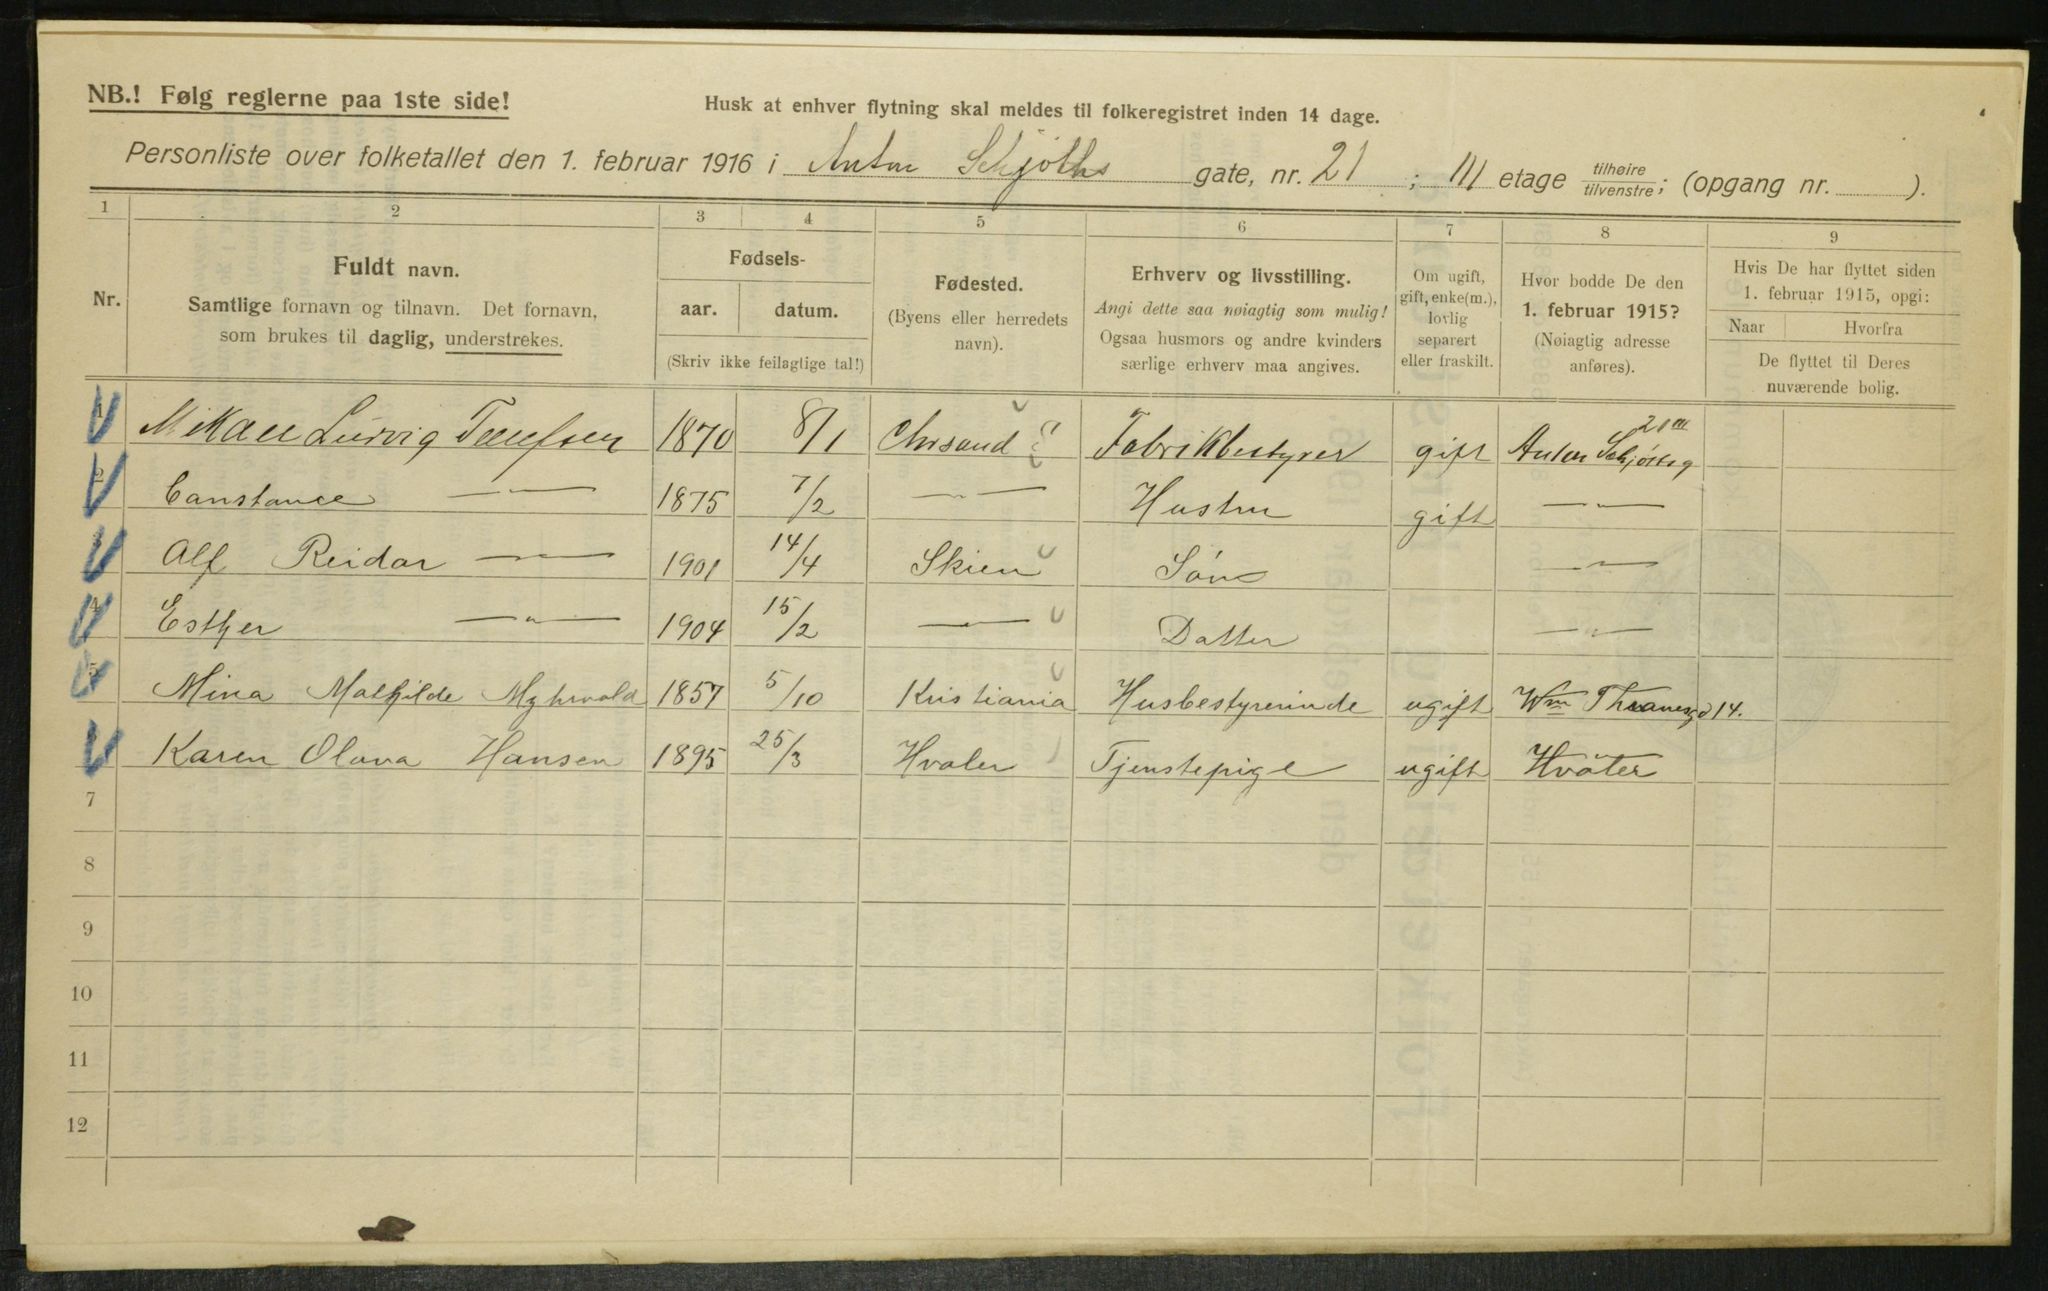 NB.! Følg reglerne paa 1ste side!
Husk at enhver flytning skal meldes til folkeregistret inden 14 dage.
Personliste over folketallet den 1. februar 1916 i Anton Schjøths gate, nr. 21 ; III etage tilhøire tilvenstre; (opgang nr. ).
1 2 3 4 5 6 7 8 9
Nr.
Fuldt navn.
Samtlige fornavn og tilnavn. Det fornavn,
som brukes til daglig, understrekes.
Fødsels-
aar. datum.
(Skriv ikke feilagtige tal!)
Fødested.
(Byens eller herredets
navn).
Erhverv og livsstilling.
Angi dette saa nøiagtig som mulig!
Ogsaa husmors og andre kvinders
særlige erhverv maa angives.
Om ugift,
gift, enke(m.),
lovlig
separert
eller fraskilt.
Hvor bodde De den
1. februar 1915?
(Nøiagtig adresse
anføres).
Hvis De har flyttet siden
1. februar 1915, opgi:
Naar Hvorfra
De flyttet til Deres
nuværende bolig.
1 Mikael Ludvig 1870 8/1 Chrsand Fabrikbestyrer gift Anton Schjøthsg 21 III
2 Constance — " — 1875 7/2 — " — Hustru gift — " —
3 Alf Reidar — " — 1901 14/4 Skien Søn — " —
4 Esther — " — 1904 15/2 — " — Datter — " —
5 Mina Mathilde Myhrvold 1857 5/10 Kristiania Husbestyrerinde ugift Wm Thranesgd 14.
Karen Olava Hansen 1895 25/3 Hvaler Tjenstepige ugift
7
8
9
10
11
12